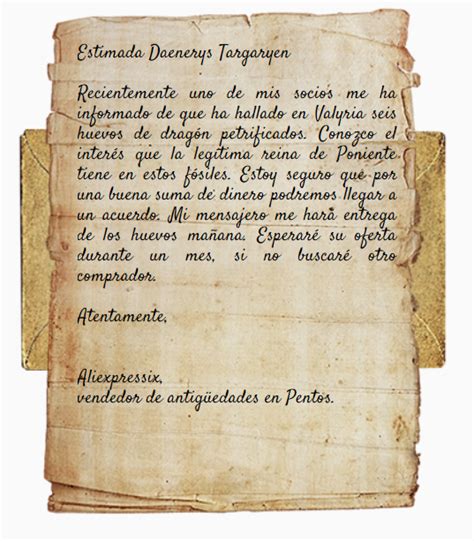 Estimada Daenerys Targaryen
Recientemente uno de mis socios me ha
informado de que ha hallado en Valyria seis
huevos de dragón petrificados. Conozco el
interés que la legítima reina de Poniente
tiene en estos fósiles. Estoy seguro que por
una buena suma de dinero podremos llegar a
un acuerdo. Mi mensajero me hará entrega
de los huevos mañana. Esperaré su oferta
durante un mes, si no buscaré otro
comprador.
Atentamente,
Aliexpressix,
vendedor de antigüedades en Pentos.